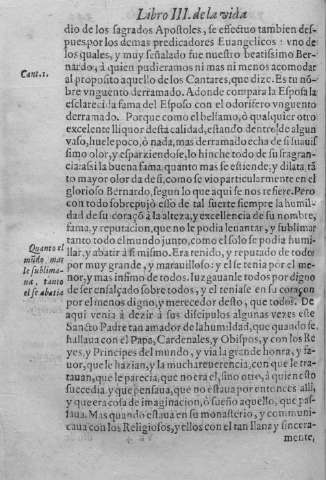 Libro III. de la vida
dio de los sagrados Apostoles, se efectuo tambien des-
pues por los demas predicadores Euangelicos: vno de
los quales, y muy señalado fue nuestro beatissimo Ber-
nardo, à quien pudieramos ni mas ni menos acomodar
Cant. 1.
al proposito aquello de los Cantares, que dize. Es tu nõ-
bre vnguento derramado. Adonde compara la Esposa la
esclarecida fama del Esposo con el odorifero vnguento
derramado. Porque como el belsamo, ò qualquier otro
excelente liquor desta calidad, estando dentro de algun
vaso, huele poco, ò nada, mas derramado echa de si suauis
simo olor, y esparziendose, lo hinche todo de su fragran-
cia: assi la buena fama, quanto mas se estiende, y dilata, tã
to mayor olor da de si, como se vio particularmente en el
glorioso Bernardo, segun lo que aqui se nos refiere. Pero
con todo sobrepujò esso de tal suerte siempre la humil-
dad de su coraçõ à la alteza, y excelencia de su nombre,
fama, y reputacion, que no le podia leuantar, y sublimar
tanto todo el mundo junto, como el solo se podia humi-
Quanto el
mũdo mas
le sublima-
ua, tanto
el se abatia
llar, y abatir à si mismo. Era tenido, y reputado de todos
por muy grande, y marauilloso: y el se tenia por el me-
nor, y mas infimo de todos. Iuzgauanle todos por digno
de ser ensalçado sobre todos, y el teniase en su coraçon
por el menos digno, y merecedor desto, que todos. De
aqui venia à dezir à sus discipulos algunas vezes este
Sancto Padre tan amador de la humildad, que quando se
hallaua con el Papa, Cardenales, y Obispos, y con los Re
yes, y Principes del mundo, y via la grande honra, y fa-
uor, que le hazian, y la mucha reuerencia, con que le tra-
tauan, que le parecia, que no era el, sino otro, à quien esto
succedia. y que pensaua, que no estaua por entonces alli,
y que era cosa de imaginacion, ò sueño aquello, que pas-
saua. Mas quando estaua en su monasterio, y communi-
caua con los Religiosos, y ellos con el tan llana y sincera-
mente,